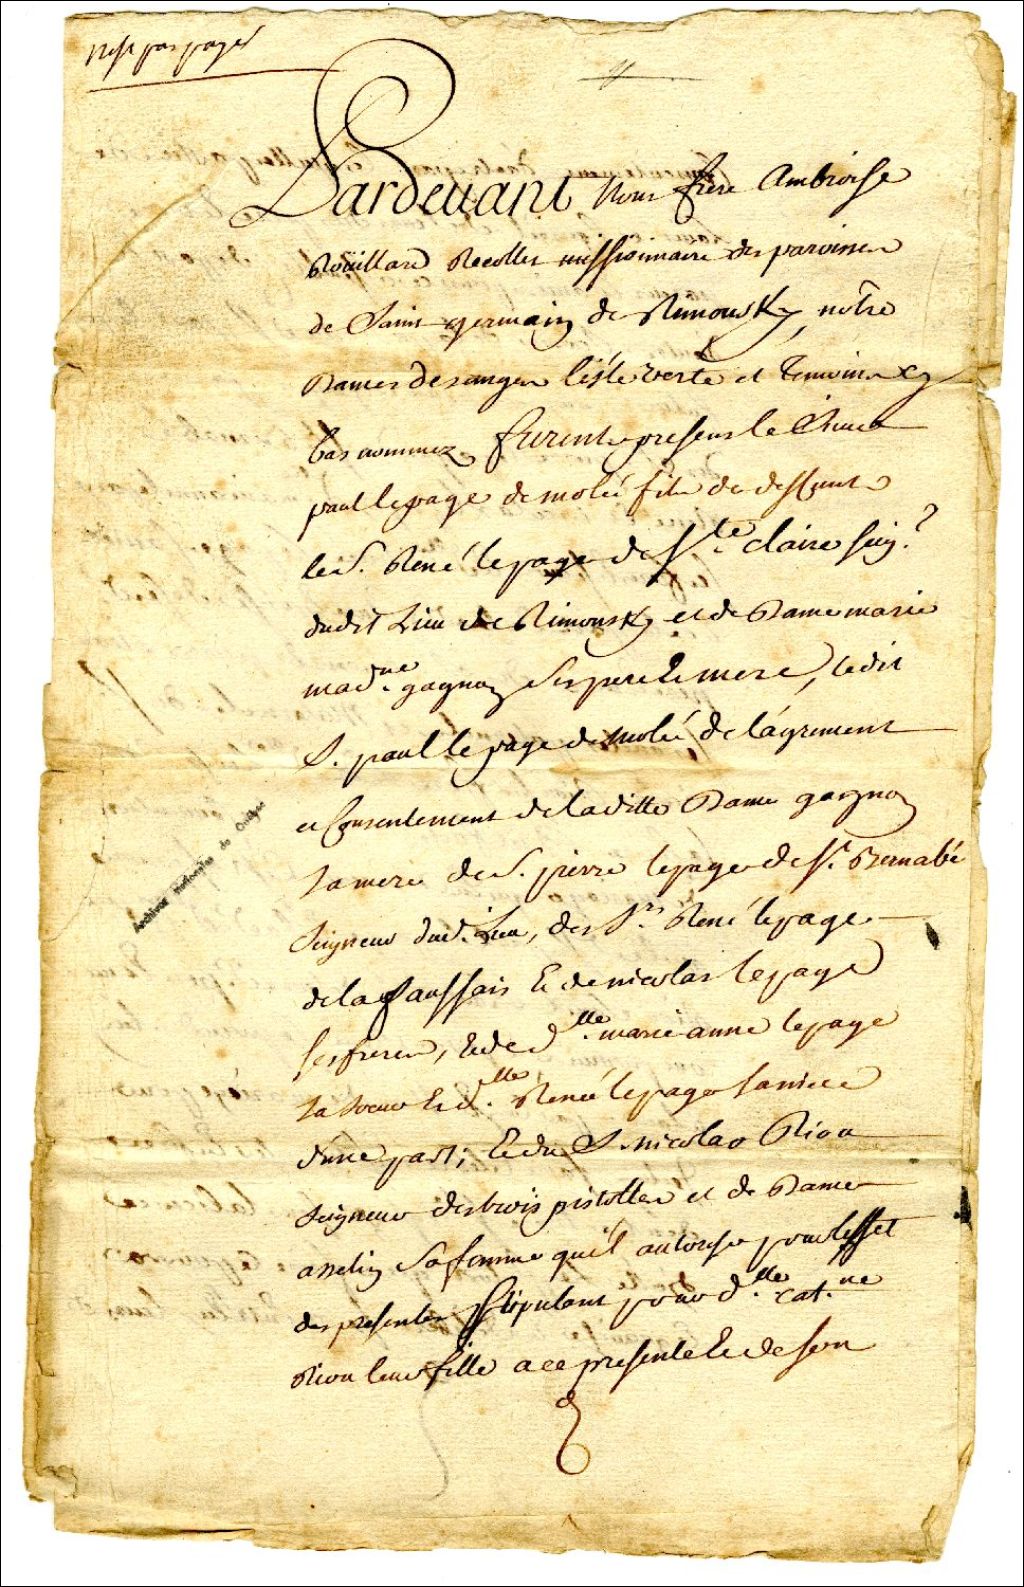 nest pas payé
Pardevant Nous frere Ambroise
Roüillard Recollet missionnaire des paroisses
de Saint germain de Rimousky, notre
Dames des anges l'isle verte et temoins cy
bas nommez furent presens le Sieur
paul lepage de molié fils de deffunt
le S. René lepage de Ste claire seigr
dudit Lieu de Rimousky et de Dame marie
madne gagnon ses pere Et mere, ledit
S. paul lepage de molié de l'agrement
et Consentement de laditte Dame gagnon
sa mere de S. pierre lepage de St. Bernabé
Seigneur dud. Lieu, des Srs René lepage
de la faussais Et de nicolas lepage
ses freres, Et de dlle marie anne lepage
sa soeur Et dlle Renée lepage sa niece
d'une part; Et du S. nicolas Riou
Seigneur des trois pistolles et de Dame
asselin sa femme qu'il autorise pour l'effet
des presentes stipulant pour dlle catne
Riou leur fille a ce presente Et de son
Archives nationales du Québec